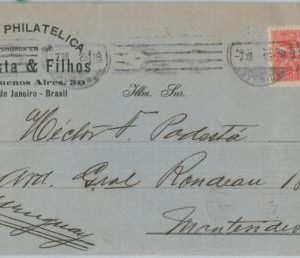 PHILATELICA
FUNDADA EM
sta & Filhos
uenos Aires, 30
de Janeiro - Brasil
Illm. Snr.
Héctor F. Podestá
Gral Rondeau 1
Montevideo
Uruguay